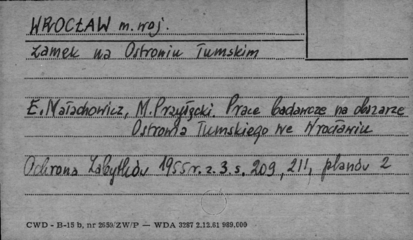 WROCŁAW m. woj.
Zamek na Ostrowiu Tumskim
E. Małachowicz, M. Przyłęcki. Prace badawcze na obszarze
Ostrowia Tumskiego we Wrocławiu
Ochrona Zabytków 1955 r. z. 3. s. 209, 211, planów 2
CWD - B-15 b, nr 2650/ZW/P — WDA 3287 2.12.61 969.000